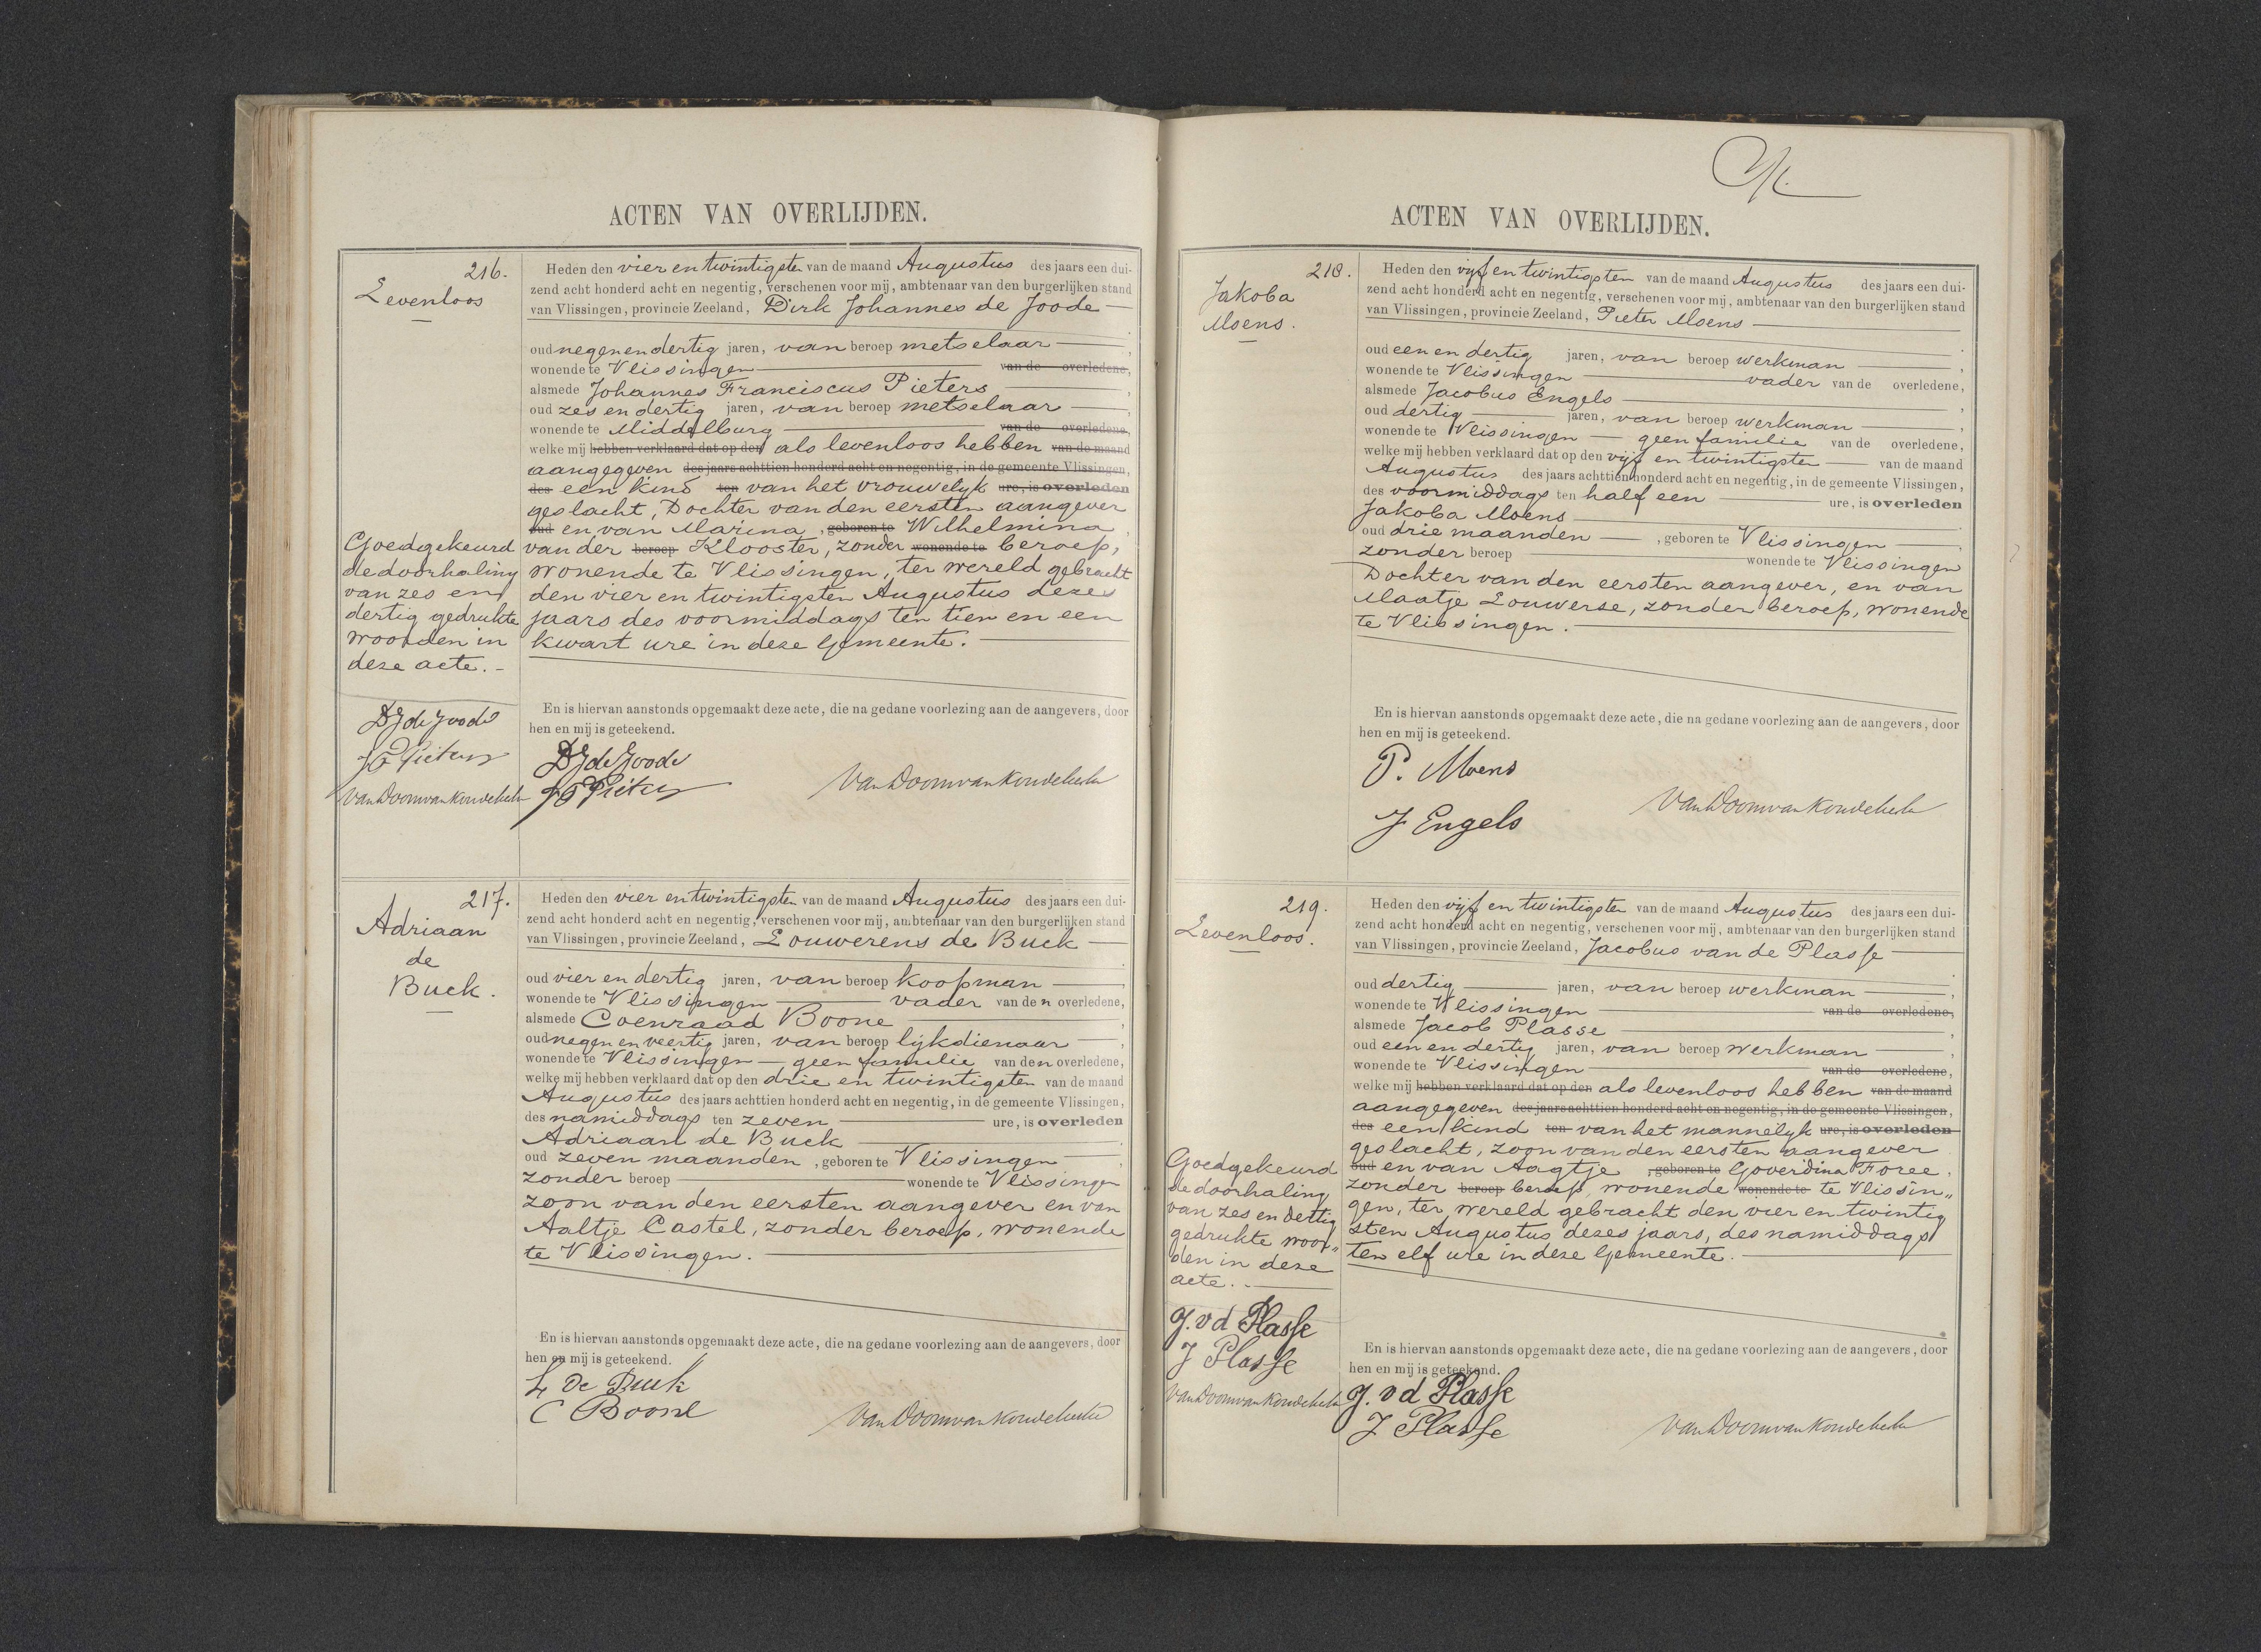 ACTEN VAN OVERLIJDEN.
216.
Levenloos
Heden den vier en twintigsten van de maand Augustus des jaars een dui-
zend acht honderd acht en negentig, verschenen voor mij, ambtenaar van den burgerlijken stand
van Vlissingen, provincie Zeeland, Dirk Johannes de Joode
oud negenendertig jaren, van beroep metselaar ,
wonende te Vlissingen van de overledene,
alsmede Johannes Franciscus Pieters ,
oud zes en dertig jaren, van beroep metselaar ,
wonende te Middelburg van de overledene,
welke mij hebben verklaard dat op den als levenloos hebben van de maand
aangegeven des jaars achttien honderd acht en negentig, in de gemeente Vlissingen,
des een kind ten van het vrouwelyk ure, is overleden
geslacht, Dochter van den eersten aangever
oud en van Marina , geboren te Wilhelmina ,
van der beroep Klooster, zonder wonende te beroep,
wonende te Vlissingen, ter wereld gebracht
den vier en twintigsten Augustus dezes
jaars des voormiddags ten tien en een
kwart ure in deze Gemeente.
Goedgekeurd
de doorhaling
van zes en
dertig gedrukte
woorden in
deze acte.
En is hiervan aanstonds opgemaakt deze acte, die na gedane voorlezing aan de aangevers, door
hen en mij is geteekend.
DJ de Joode
JF Pieters
Van Doorn van Koudekerke
DJ de Joode
JF Pieters
Van Doorn van Koudekerke
217.
Adriaan
de
Buck.
Heden den vier en twintigsten van de maand Augustus des jaars een dui-
zend acht honderd acht en negentig, verschenen voor mij, ambtenaar van den burgerlijken stand
van Vlissingen, provincie Zeeland, Louwerens de Buck
oud vier en dertig jaren, van beroep koopman ,
wonende te Vlissingen vader van den overledene,
alsmede Coenraad Boone ,
oud negen en veertig jaren, van beroep lykdienaar ,
wonende te Vlissingen – geen familie van den overledene,
welke mij hebben verklaard dat op den drie en twintigsten van de maand
Augustus des jaars achttien honderd acht en negentig, in de gemeente Vlissingen,
des namiddags ten zeven ure, is overleden
Adriaan de Buck
oud zeven maanden , geboren te Vlissingen ,
zonder beroep wonende te Vlissingen
zoon van den eersten aangever en van
Aaltje Castel, zonder beroep, wonende
te Vlissingen.
En is hiervan aanstonds opgemaakt deze acte, die na gedane voorlezing aan de aangevers, door
hen en mij is geteekend.
L De Buck
C Boone
Van Doorn van Koudekerke
ACTEN VAN OVERLIJDEN.
218.
Jakoba
Moens.
Heden den vijf en twintigsten van de maand Augustus des jaars een dui-
zend acht honderd acht en negentig, verschenen voor mij, ambtenaar van den burgerlijken stand
van Vlissingen, provincie Zeeland, Pieter Moens
oud een en dertig jaren, van beroep werkman ,
wonende te Vlissingen vader van de overledene,
alsmede Jacobus Engels ,
oud dertig jaren, van beroep werkman ,
wonende te Vlissingen – geen familie van de overledene,
welke mij hebben verklaard dat op den vijf en twintigsten van de maand
Augustus des jaars achttien honderd acht en negentig, in de gemeente Vlissingen,
des voormiddags ten half een ure, is overleden
Jakoba Moens
oud drie maanden , geboren te Vlissingen ,
zonder beroep wonende te Vlissingen
Dochter van den eersten aangever, en van
Maatje Louwerse, zonder beroep, wonende
te Vlissingen.
En is hiervan aanstonds opgemaakt deze acte, die na gedane voorlezing aan de aangevers, door
hen en mij is geteekend.
P. Moens
J Engels
Van Doorn van Koudekerke
219.
Levenloos.
Heden den vijf en twintigsten van de maand Augustus des jaars een dui-
zend acht honderd acht en negentig, verschenen voor mij, ambtenaar van den burgerlijken stand
van Vlissingen, provincie Zeeland, Jacobus van de Plasse
oud dertig jaren, van beroep werkman ,
wonende te Vlissingen van de overledene,
alsmede Jacob Plasse ,
oud een en dertig jaren, van beroep werkman ,
wonende te Vlissingen van de overledene,
welke mij hebben verklaard dat op den als levenloos hebben van de maand
aangegeven des jaars achttien honderd acht en negentig, in de gemeente Vlissingen,
des een kind ten van het mannelyk ure, is overleden
geslacht, zoon van den eersten aangever
oud en van Aagtje , geboren te Goverdina Foree,
zonder beroep beroep, wonende wonende te te Vlissin„
gen, ter wereld gebracht den vier en twintig
sten Augustus dezes jaars, des namiddags
ten elf ure in deze Gemeente.
Goedgekeurd
de doorhaling
van zes en dertig
gedrukte woor„
den in deze
acte.
J. v d Plasse
J Plasse
Van Doorn van Koudekerke
En is hiervan aanstonds opgemaakt deze acte, die na gedane voorlezing aan de aangevers, door
hen en mij is geteekend.
J. v d Plasse
J Plasse
Van Doorn van Koudekerke